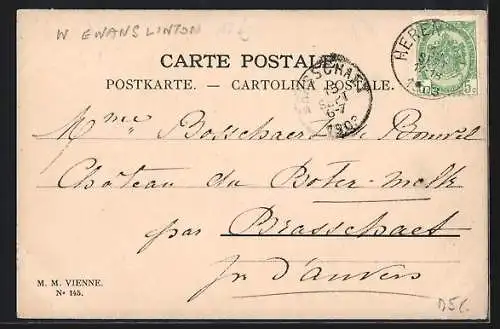 W EWANS LINTON
CARTE POSTALE
POSTKARTE. — CARTOLINA POSTALE.
BRASSCHAET
13
SEPT
6-7
1903
HEREN
1903
5c
Mme Bosschaert de Bouwel
Château du Boter-melk
par Brasschaet
pr. d'Anvers
M. M. VIENNE.
No 145.
D56.